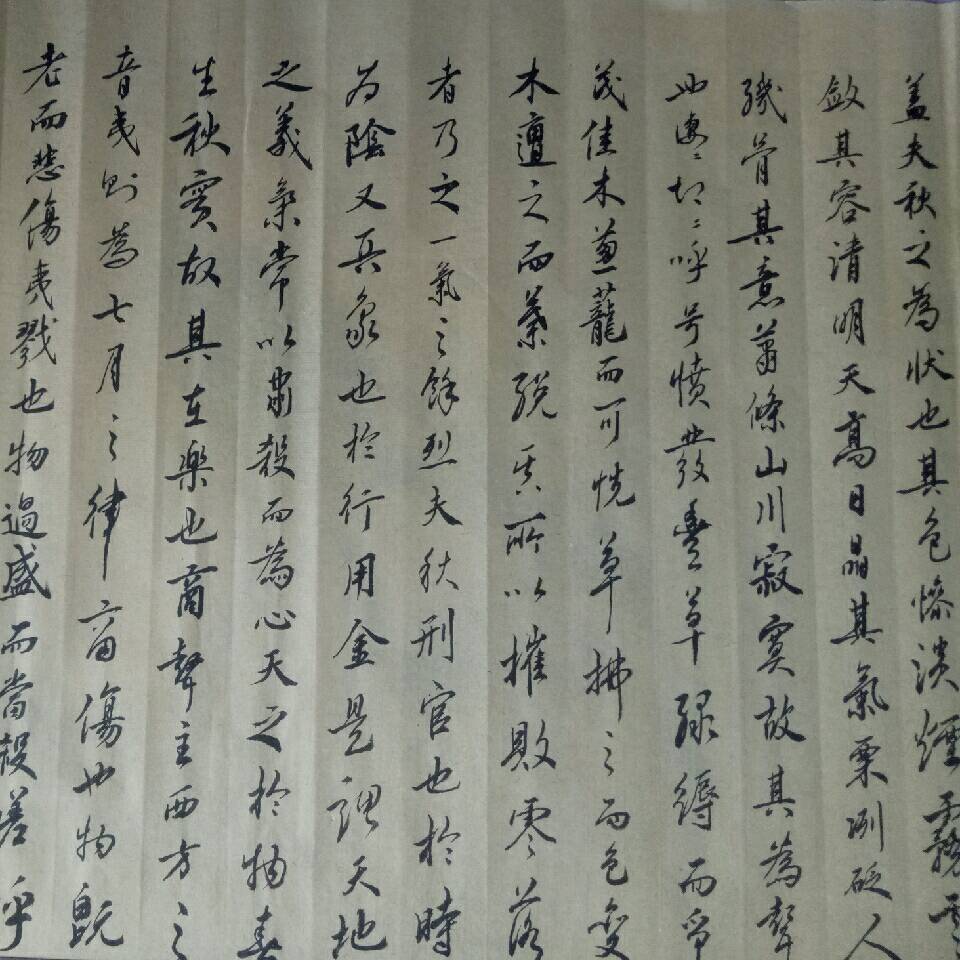 蓋夫秋之為狀也其色慘淡煙霧雲
斂其容清明天高日晶其氣栗冽砭人
骨其意蕭條山川寂寞故其為聲
淒〻切〻呼号憤發豐草綠縟而爭
茂佳木蔥蘢而可悅草拂之而色變
木遭之而葉脫其所以摧敗零落
者乃之一氣之餘烈夫秋刑官也於時
为陰又兵象也於行用金是謂天地
之義氣常以肅殺而為心天之於物春
生秋實故其在樂也商聲主西方之
音夷則為七月之律商傷也物既
老而悲傷夷戮也物過盛而當殺嗟乎